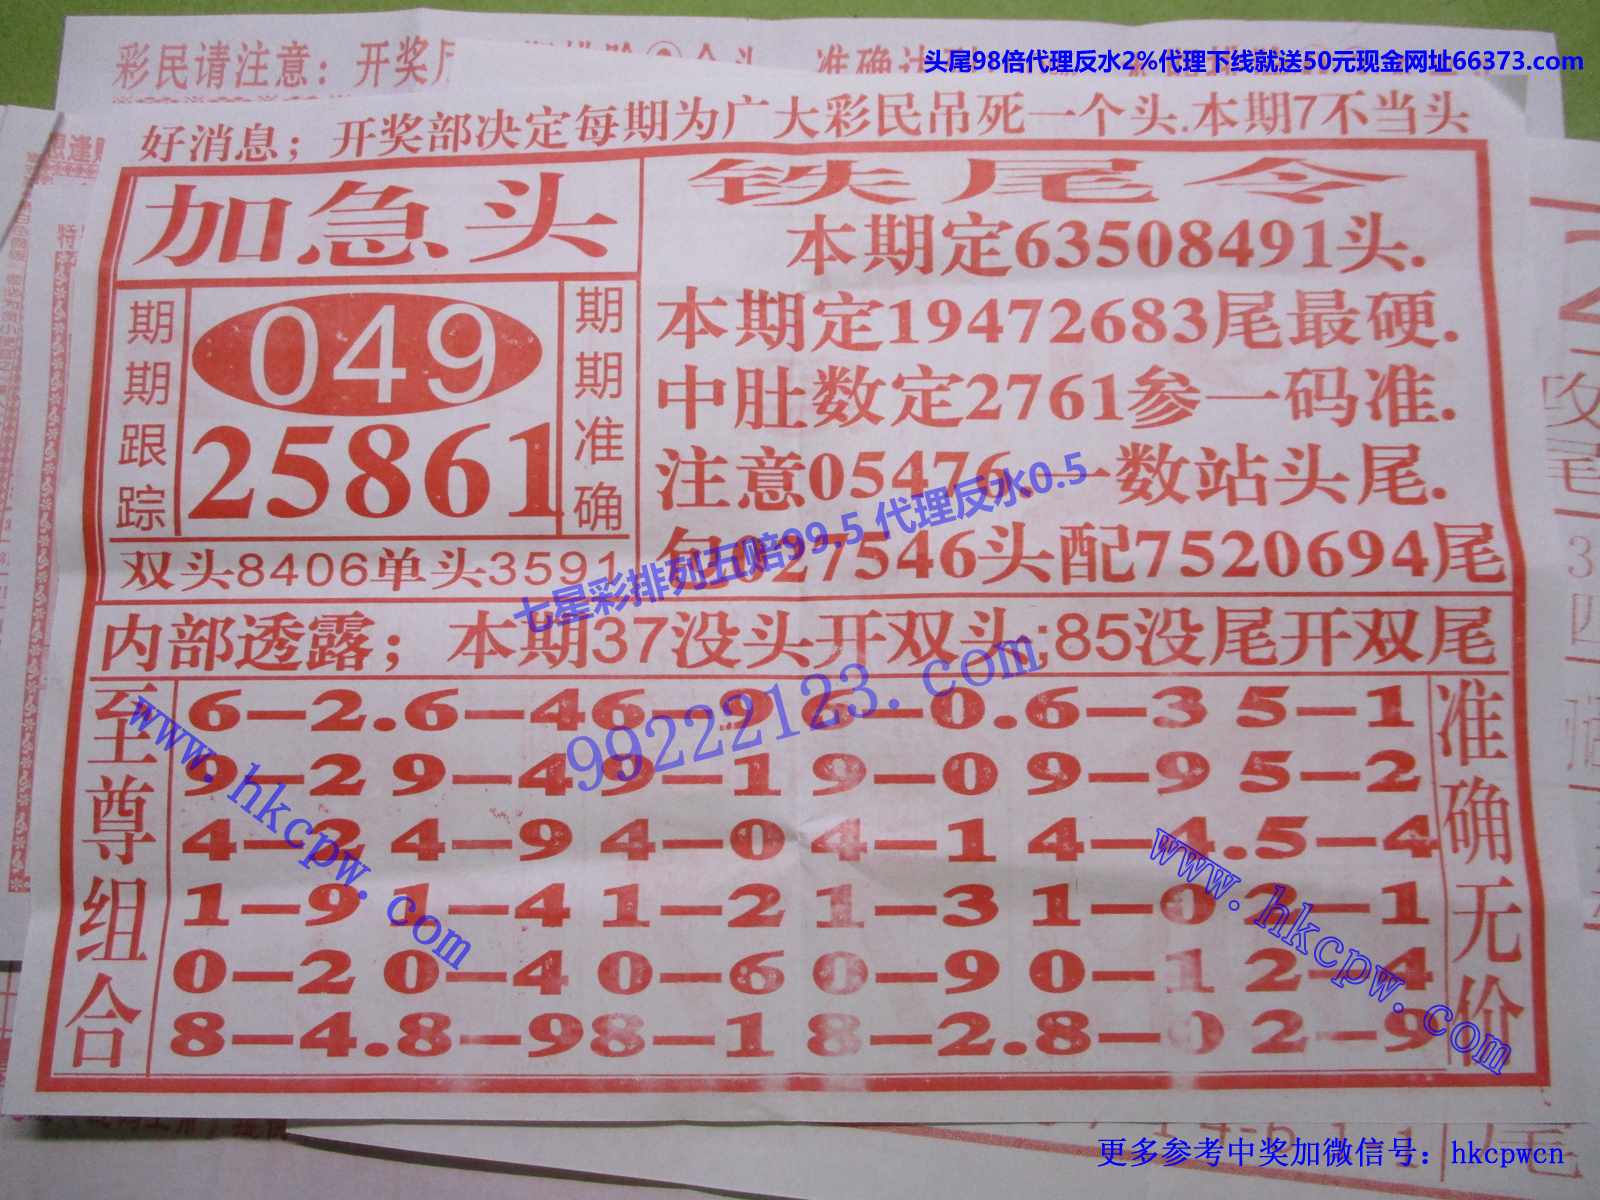 头尾98倍代理反水2%代理下线就送50元现金网址66373.com
彩民请注意：开奖
准确
好消息；开奖部决定每期为广大彩民吊死一个头.本期7不当头
加急头
期期跟踪
049
25861
期期准确
双头8406单头3591
铁尾令
本期定63508491头.
本期定19472683尾最硬.
中肚数定2761参一码准.
注意05476.一数站头尾.
包027546头配7520694尾
七星彩排列五赔99.5 代理反水0.5
内部透露；本期37没头开双头;85没尾开双尾
99222123.com
至尊组合
6—2.6—46—9 6—0.6—3 5—1
9—2 9—4 9—1 9—0 9—9 5—2
4—2 4—9 4—0 4—1 4—4.5—4
1—9 1—4 1—2 1—3 1—0 2—1
0—2 0—4 0—6 0—9 0—1 2—4
8—4.8—98—1 8—2.8—0 2—9
准确无价
www.hkcpw.com
www.hkcpw.com
更多参考中奖加微信号：hkcpwcn